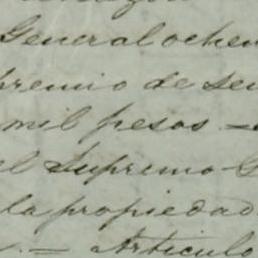 General ochen
premio de se
mil pesos —
el Supremo G
la propiedad
— Articulo